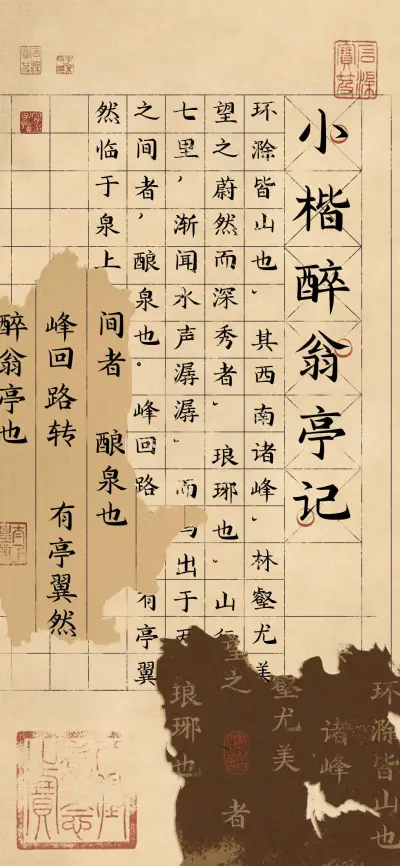 小楷醉翁亭记
环滁皆山也、其西南诸峰、林壑尤美
望之蔚然而深秀者、琅琊也、山行
七里，渐闻水声潺潺、而出于
之间者，酿泉也。峰回路有亭翼
然临于泉上
间者 酿泉也
峰回路转 有亭翼然
醉翁亭也
环滁皆山也
诸峰
壑尤美
望之
者
琅琊也